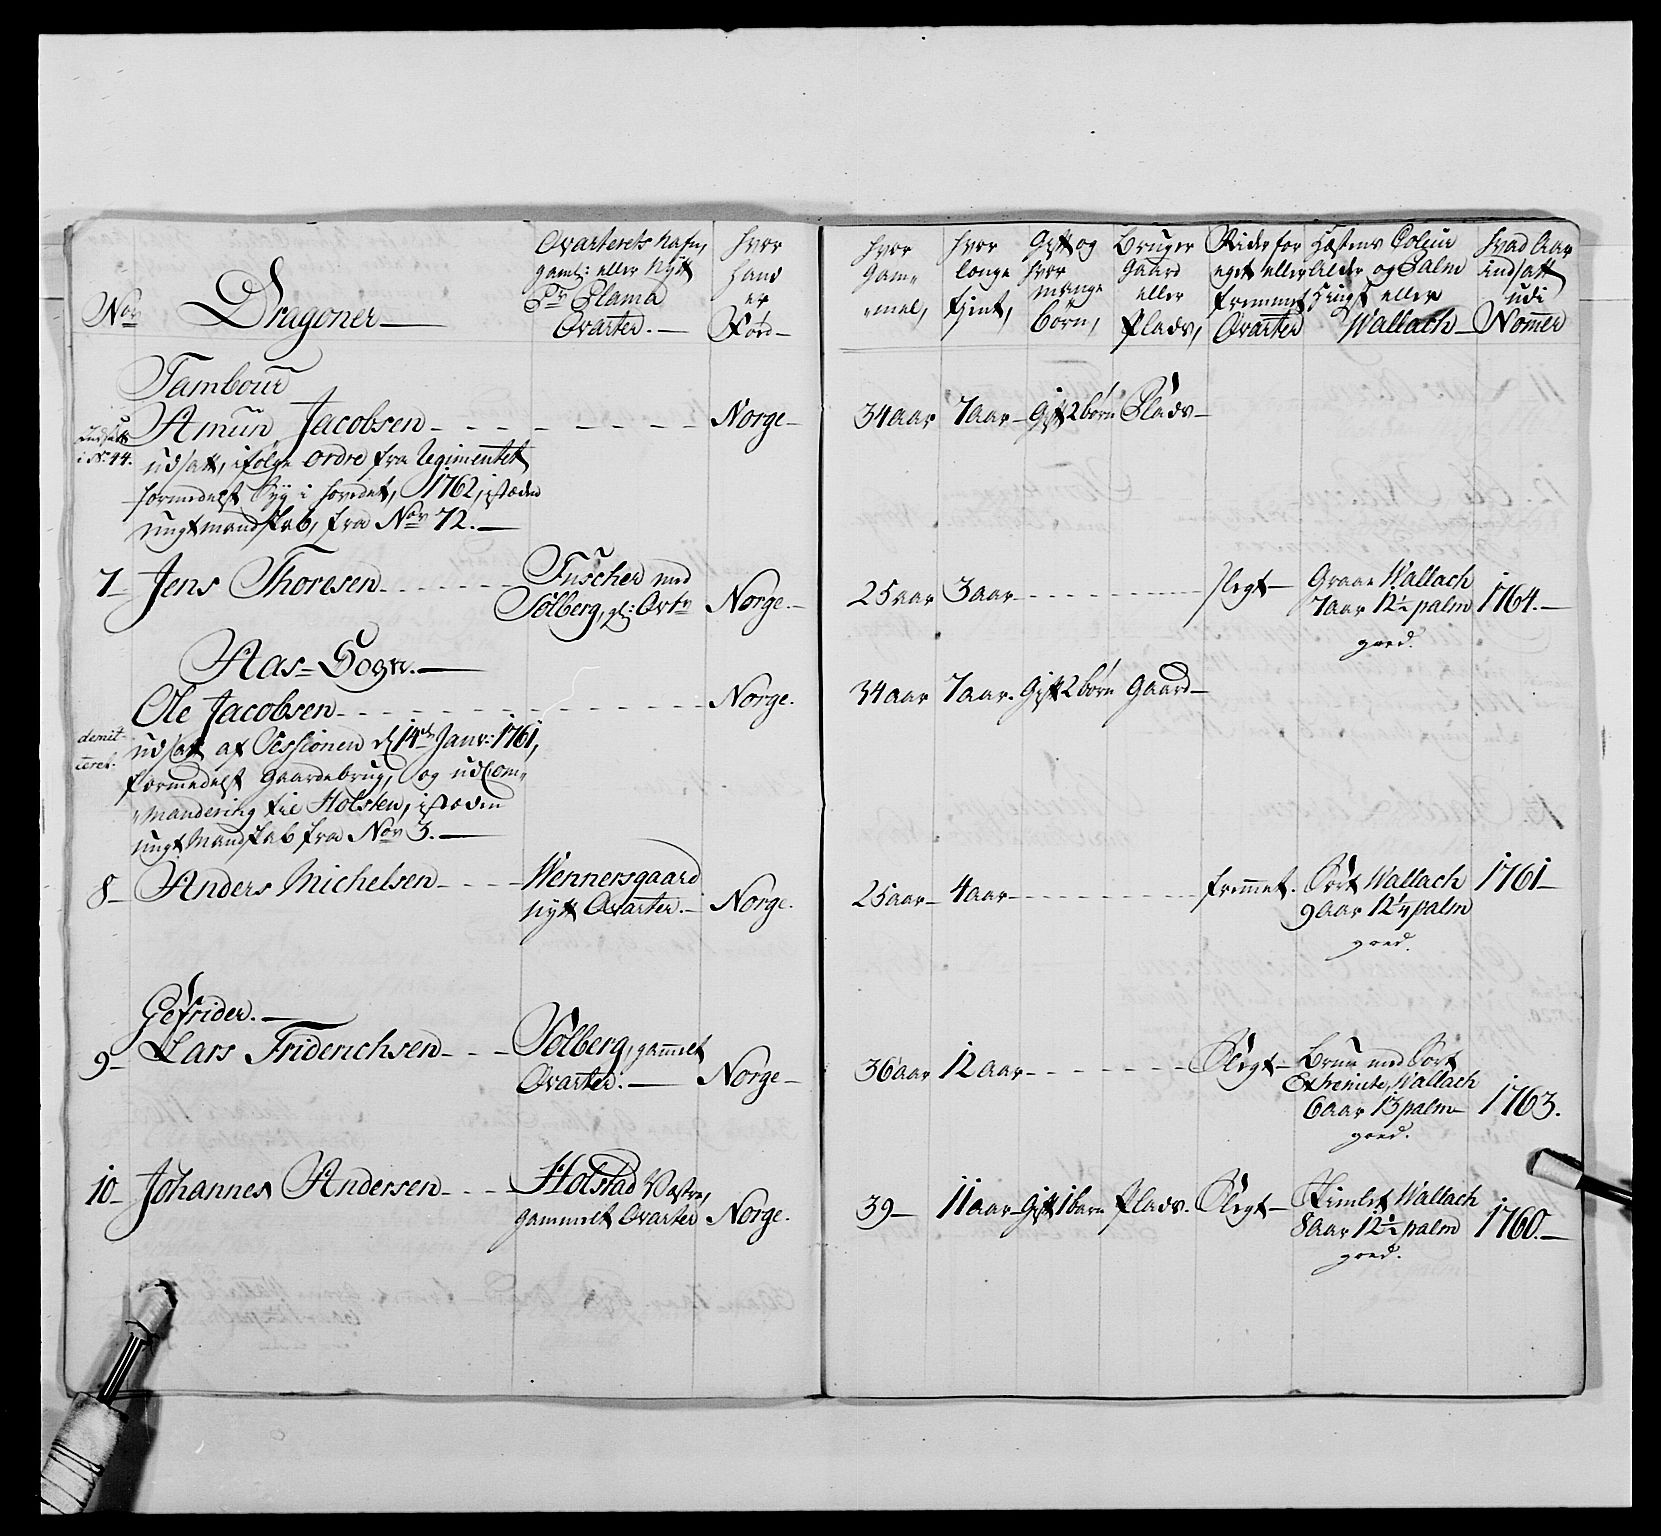 Nor
Dragoner
Qvarterets Nafn,
gaml: eller Nytt
Reclama
Qvarter.
hvor
hand
er
Fød
hvor
Gam-
mel,
hvor
longe
tjent,
Gift og
hvor
mange
børn,
Bruger
Gaard
eller
Plads,
Rider for
eget eller
fremmet
Qvarter
Hæstens Coleur
Alder og Palm
Hingst eller
Wallach
hvad Aar
indsatt
udi
Nomer
Tambour
Amun Jacobsen
Norge
34 aar
7 aar
Gift 2 børn
Plads
Indsatt
i No: 44.
udsatt, ifølge ordre fra Regimentet
formedelst Syg i hovedet, 1762, isteden
ungt mandskab, fra Nor 72.
7 Jens Thoresen
Fuscher med
Solberg, gl: Qvtr
Norge.
25 aar
3 aar
slegt
Graae Wallach
7 aar 12½ palm
goed.
1764.
Aas-Sogn.
Ole Jacobsen
Norge.
34 aar
7 aar.
Gift 2 børn
Gaard
demit-
teret.
udsatt af Sessionen d 14de Janv: 1761,
formedelst Gaardebrug, og udCom-
mandering til Holsten, isteden
ungt Mandskab fra Nor 3.
8 Anders Michelsen
Wennersgaard
Nytt Qvarter.
Norge.
25 aar
4 aar
fremmet.
Sort Wallach
9 aar 12¼ palm
goed.
1761
Gefrider.
9 Lars Friderichsen
Solberg, gammelt
Qvarter.
Norge
36 aar
12 aar
Slegt
Bruun med Sort
Extremite, Wallach
6 aar 13 palm
goed.
1763.
10 Johannes Andersen
Holstad Vestre,
gammelt Qvarter
Norge.
39
11 aar
Gift 1 barn
Plads.
Slegt
Skimlet Wallach
8 aar 12½ palm
goed.
1760.